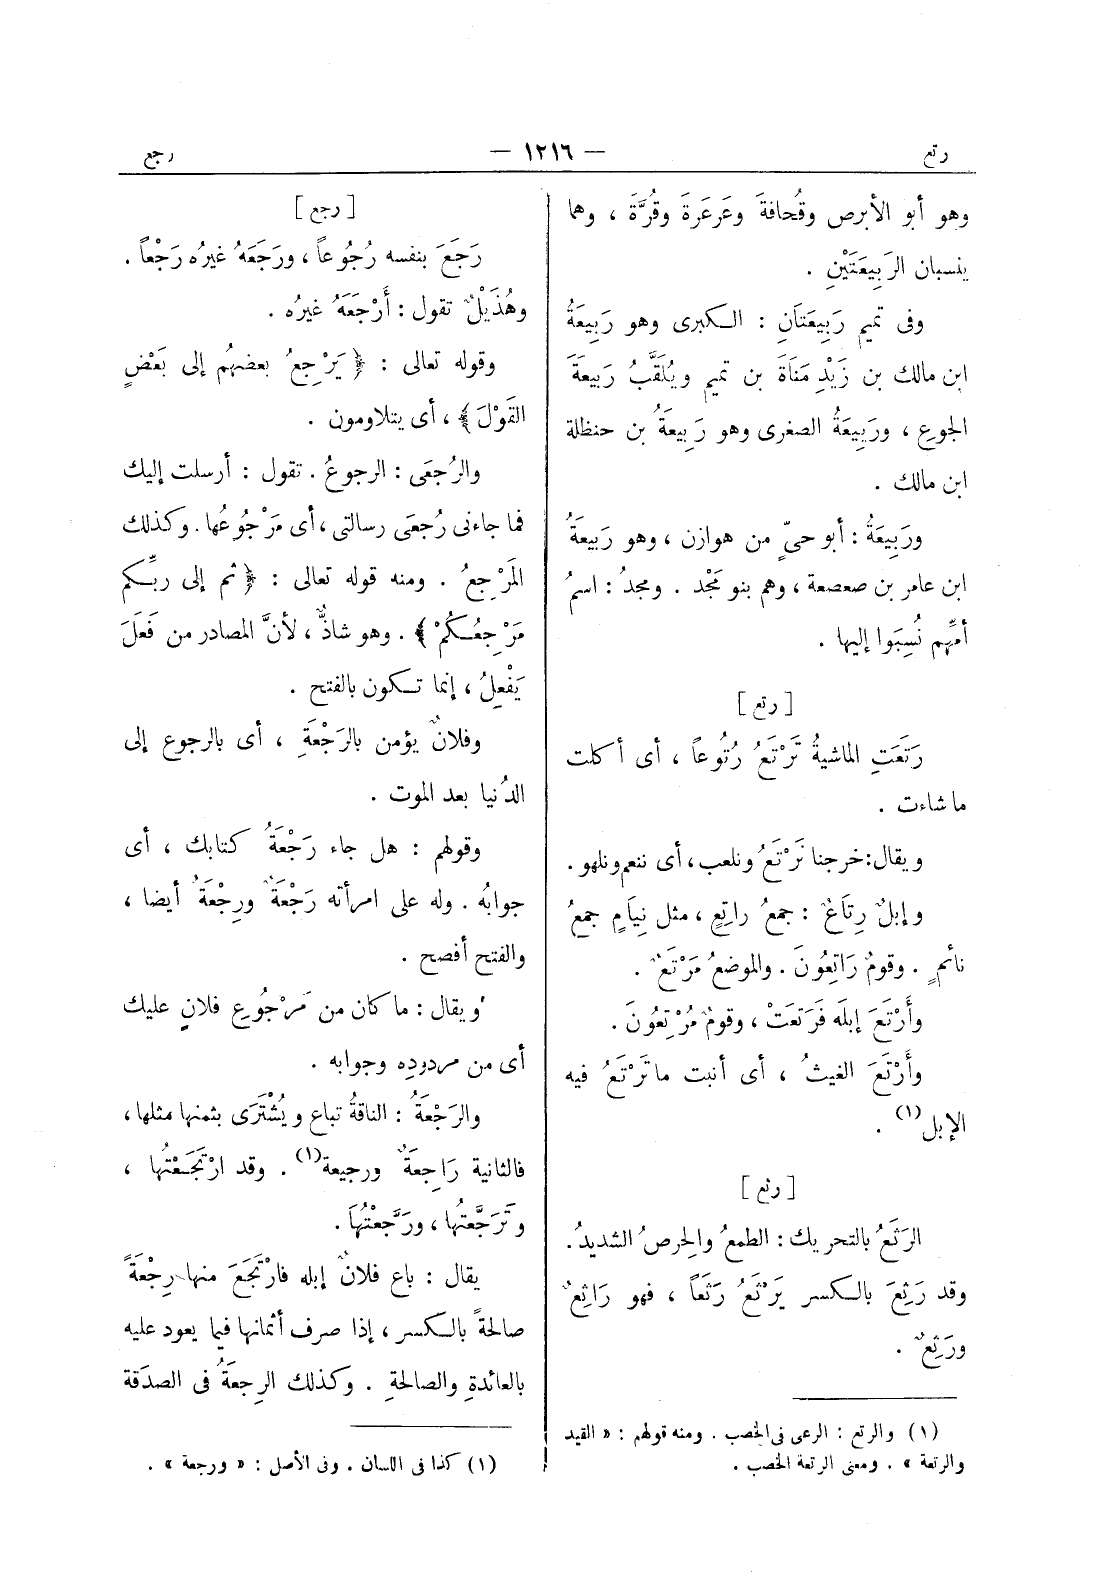 رتع
— ١٢١٦ —
رجع
وهو أبو الأبرص وقُحافةَ وعَرعَرةَ وقُرَّةَ ، وهما
ينسبان الرَبِيعَتَيْنِ .
وفى تميم رَبِيعَتَانِ : الكبرى وهو رَبِيعَةُ
ابن مالك بن زَيْدِ مَنَاةَ بن تميم ويُلَقَّبُ رَبيعَةَ
الجوعِ ، ورَبِيعَةُ الصغرى وهو رَبِيعَةُ بن حنظلة
ابن مالك .
ورَبِيعَةُ : أبو حىٍّ من هوازن ، وهو رَبيعَةُ
ابن عامر بن صعصعة ، وهم بنو مَجْد . ومجدُ : اسمُ
أمِّهم نُسِبَوا إليها .
[ رتع ]
رَتَعَتِ الماشيةُ تَرْتَعُ رُتُوعاً ، أى أكلت
ما شاءت .
ويقال : خرجنا نَرْتَعُ ونلعب ، أى ننعم ونلهو .
وإبلٌ رِتَاعٌ : جمعُ راتِعٍ ، مثل نِيَامٍ جمعُ
نائمٍ . وقومٌ رَاتِعُونَ . والموضعُ مَرْتَعٌ .
وأَرْتَعَ إبلَه فَرَتعَتْ ، وقومٌ مُرْتِعُونَ .
وأَرْتَعَ الغيثُ ، أى أنبت ما تَرْتَعُ فيه
الإبل (١) .
[ رثع ]
الرَثَعُ بالتحريك : الطمعُ والحِرصُ الشديدُ .
وقد رَثِعَ بالكسر يَرْثَعُ رَثَعاً ، فهو رَاثِعٌ
ورَثِعٌ .
(١) والرتع : الرعى فى الخصب . ومنه قولهم : « القيد
والرتعة » . ومعنى الرتعة الخصب .
[ رجع ]
رَجَعَ بنفسه رُجُوعاً ، ورَجَعَهُ غيرُه رَجْعاً .
وهُذَيْلٌ تقول : أَرْجَعَهُ غيرُه .
وقوله تعالى : ﴿ يَرْجِعُ بعضهُم إلى بَعْضٍ
القَوْلَ ﴾ ، أى يتلاومون .
والرُجعَى : الرجوعُ . تقول : أرسلت إليك
فما جاءنى رُجعَى رسالتى ، أى مَرْجُوعُها . وكذلك
المَرْجِعُ . ومنه قوله تعالى : ﴿ ثم إلى ربِّكم
مَرْجِعُكُمْ ﴾ . وهو شاذٌّ ، لأنَّ المصادر من فَعَلَ
يَفْعِلُ ، إنما تكون بالفتح .
وفلانٌ يؤمن بالرَجْعَةِ ، أى بالرجوع إلى
الدُنيا بعد الموت .
وقولهم : هل جاء رَجْعَةُ كتابك ، أى
جوابُه . وله على امرأته رَجْعَةٌ ورِجْعَةٌ أيضا ،
والفتح أفصح .
ويقال : ما كان من مَرْجُوعِ فلانٍ عليك
أى من مردودِه وجوابه .
والرَجْعَةُ : الناقةُ تباع ويُشْتَرَى بثمنها مثلها ،
فالثانية رَاجِعَةٌ ورجيعة (١) . وقد ارْتَجَعْتُها ،
وتَرَجَّعتُها ، ورَجَّعْتُهَا .
يقال : باع فلانٌ إبله فارْتَجَعَ منها رِجْعَةً
صالحةً بالكسر ، إذا صرف أثمانها فيما يعود عليه
بالعائدةِ والصالحةِ . وكذلك الرِجعَةُ فى الصدَقة
(١) كذا فى اللسان . وفى الأصل : « ورجعة » .